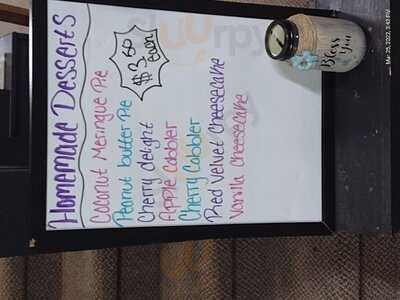 Homemade Desserts
$3.50
each
Coconut Meringue Pie
Peanut butter Pie
Cherry delight
Apple Cobbler
Cherry Cobbler
Red Velvet Cheesecake
Vanilla Cheesecake
Bless
You
Mar 25, 2022, 3:43 PM